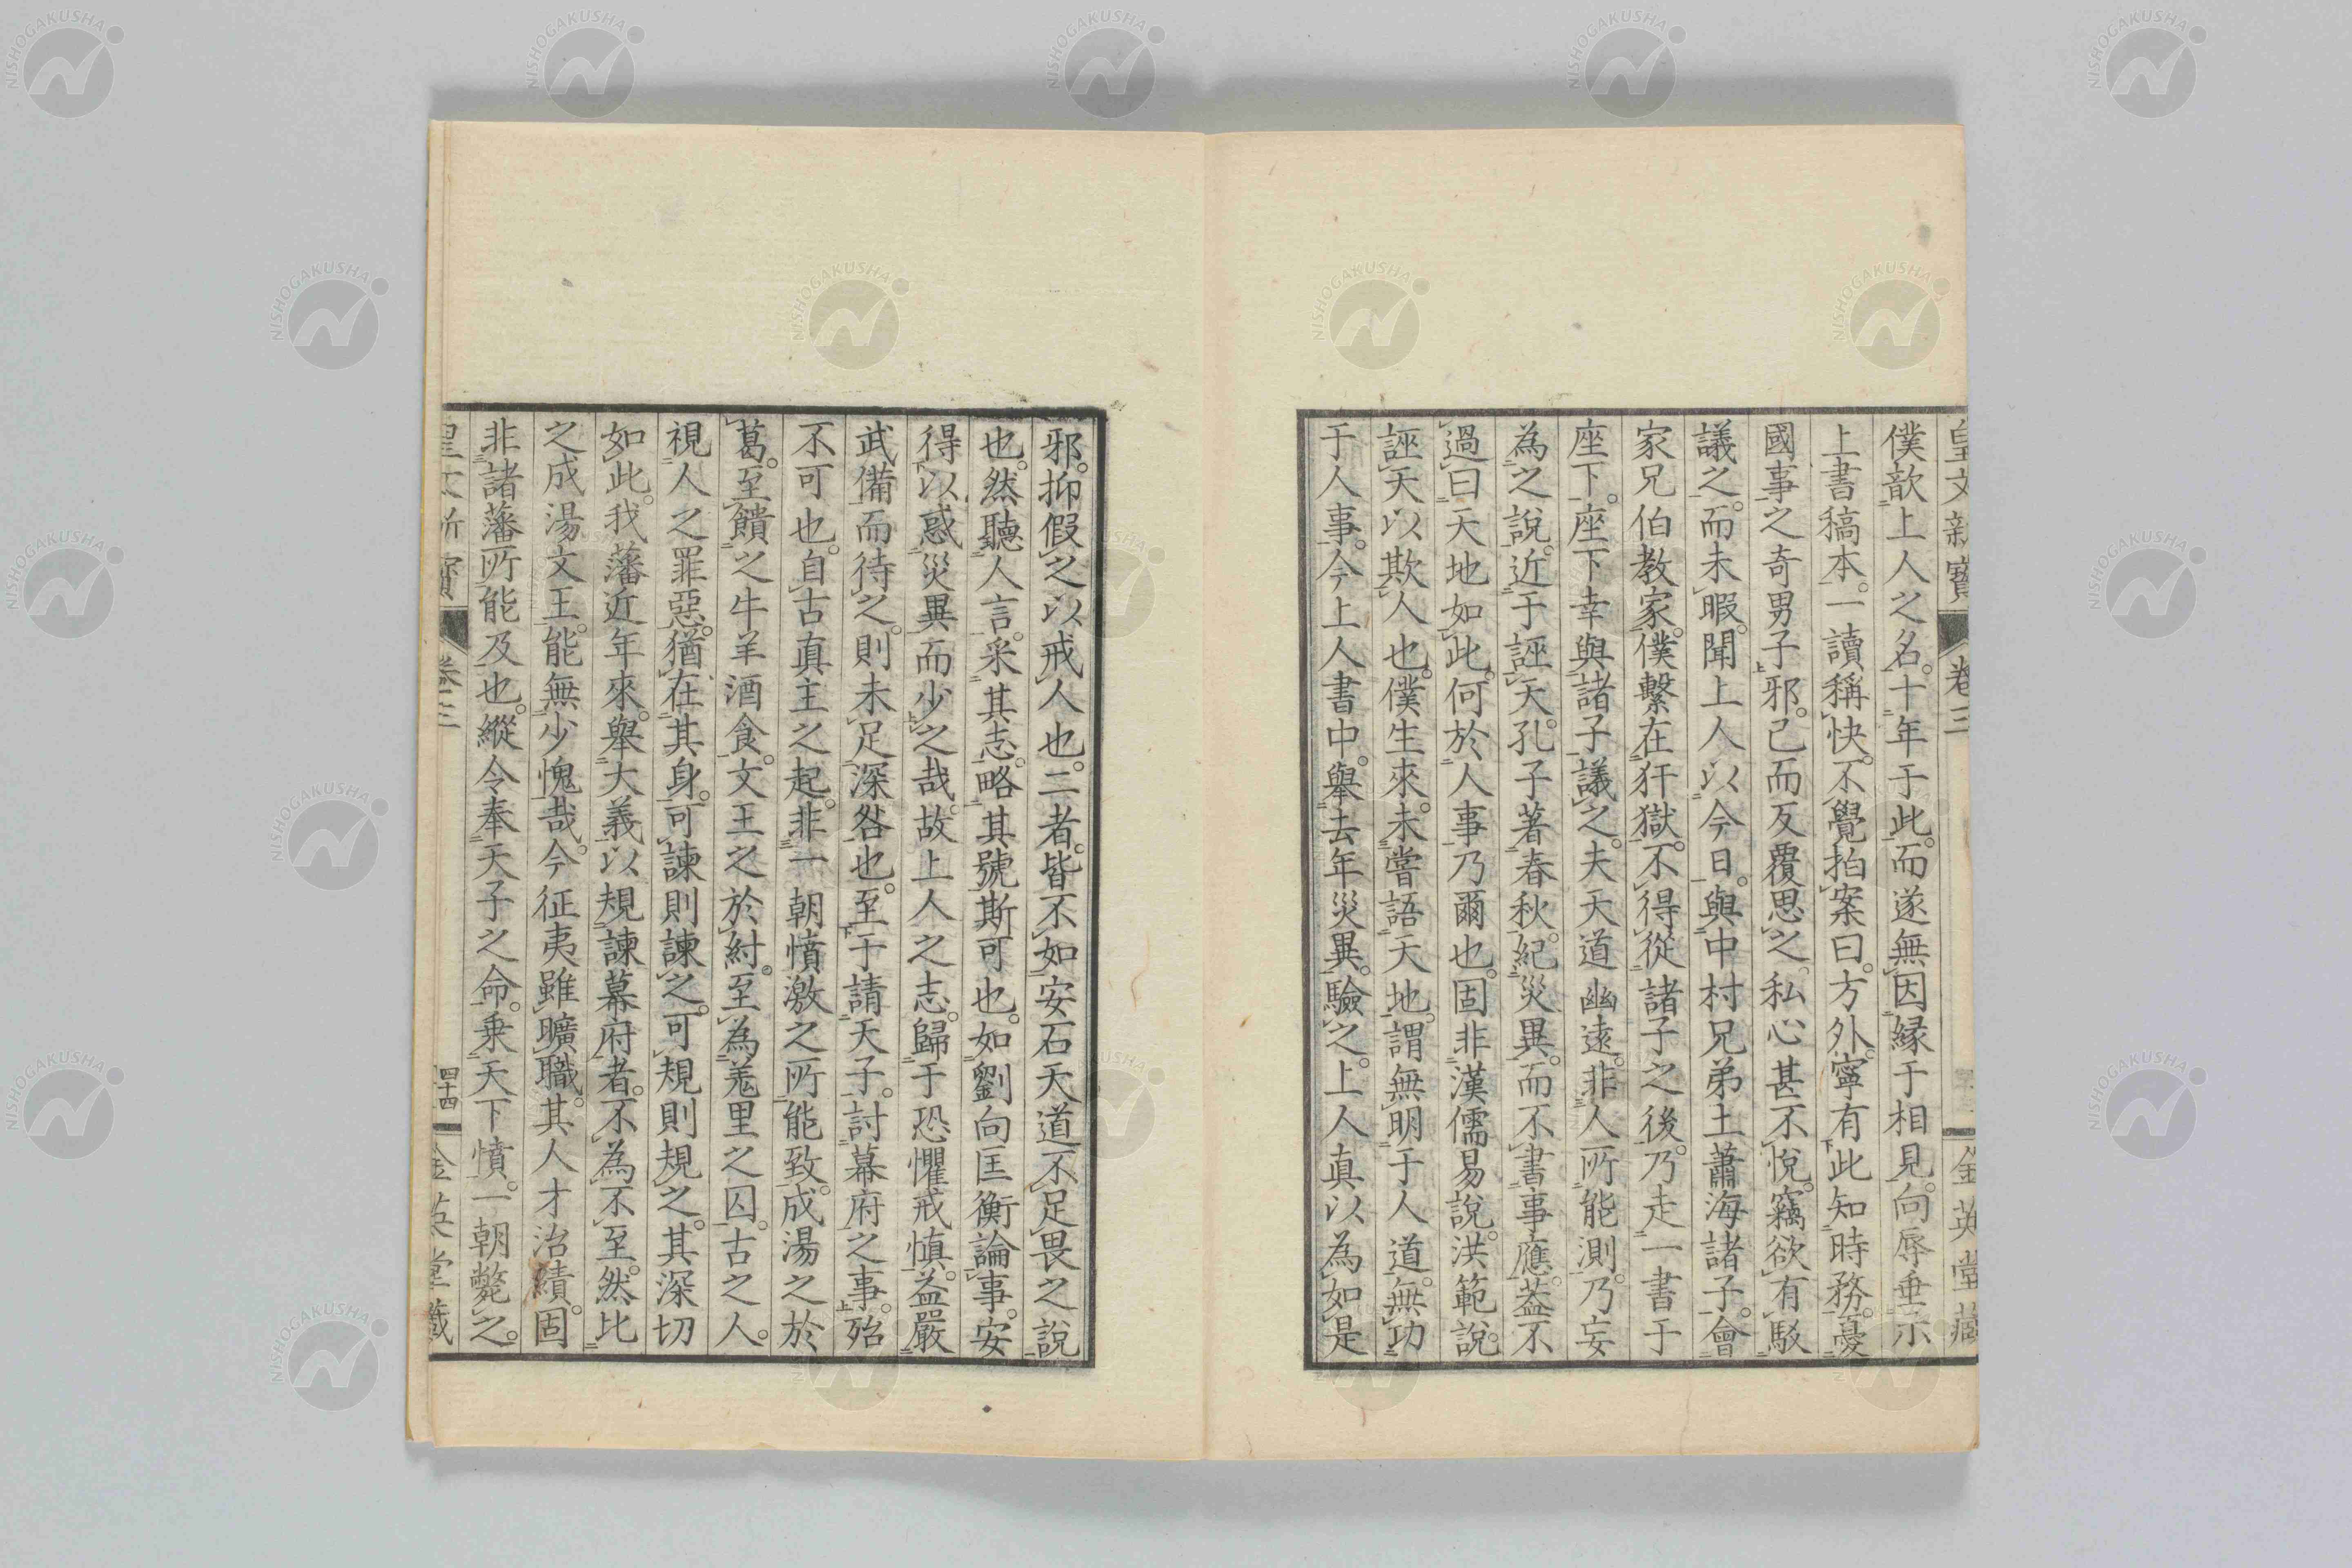 僕歆上人之名。十年于此。而遂無因縁于相見。向辱垂示
上書稿本。一讀稱快。不覺拍案曰。方外。寧有此知時務。憂
國事之奇男子邪。己而反覆思之。私心甚不悅。竊欲有駁
議之。而未暇。聞上人以今日。與中村兄弟土蕭海諸子。會
家兄伯教家。僕繫在犴獄。不得從諸子之後。乃走一書于
座下。座下幸與諸子議之。夫天道幽遠。非人所能測。乃妄
為之說。近于誣天。孔子著春秋。紀災異。而不書事應。蓋不
誣天以欺人也。僕生來。未嘗語天地。謂無明于人道。無功
過。曰天地如此。何於人事乃爾也。固非漢儒易說。洪範說。
于人事。今上人書中。舉去年災異。驗之。上人真以為如是
邪。抑假之以戒人也。二者。皆不如安石天道不足畏之說
也。然聽人言。采其志。略其號斯可也。如劉向匡衡論事。安
得以惑災異而少之哉。故上人之志。歸于恐懼戒慎。益嚴
武備而待之。則未足深咎也。至于請天子。討幕府之事。殆
不可也。自古真主之起。非一朝憤激之所能致。成湯之於
葛。至饋之牛羊酒食。文王之於紂。至為羑里之囚。古之人。
視人之罪惡。猶在其身。可諫則諫之。可規則規之。其深切
如此。我藩近年來。舉大義以規諫幕府者。不為不至。然比
之成湯文王。能無少愧哉。今征夷雖曠職。其人才治績。固
非諸藩所能及也。縱令奉天子之命。乗天下憤。一朝斃之。
皇文新寶 卷三 四十四 金英堂藏